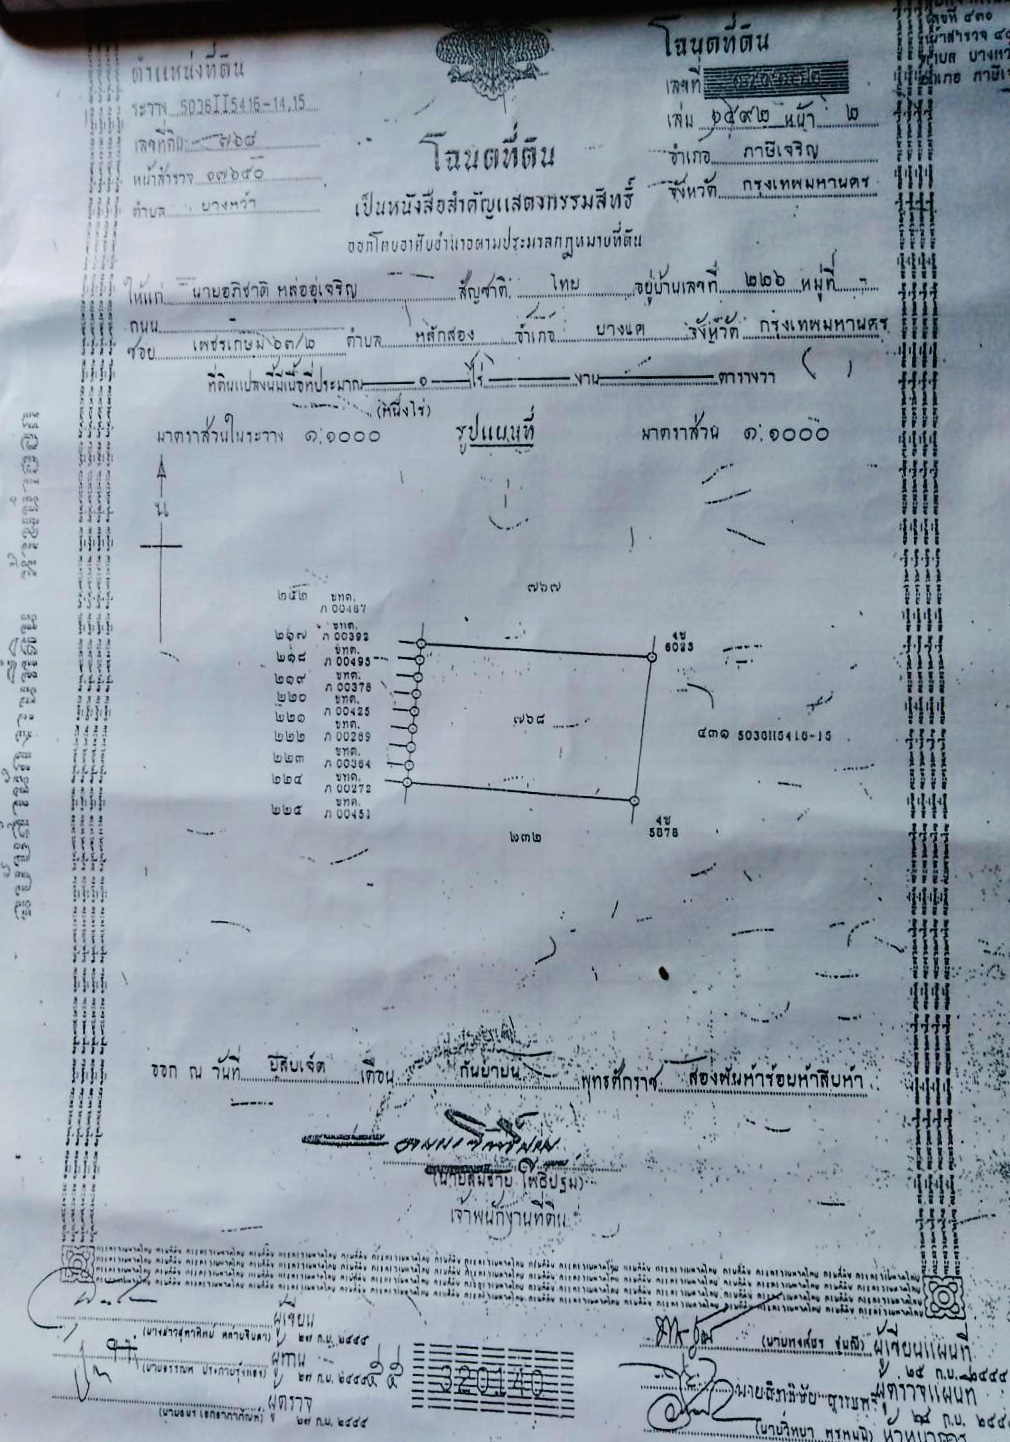 ตำแหน่งที่ดิน
ระวาง 5036II5416-14,15
เลขที่ดิน ๗๖๘
หน้าสำรวจ ๑๗๖๕๐
ตำบล บางหว้า
โฉนดที่ดิน
เลขที่
เล่ม ๑๕๙๒ หน้า ๒
อำเภอ ภาษีเจริญ
จังหวัด กรุงเทพมหานคร
เลขที่ ๔๓๐
ตำบล บางหว้า
โฉนดที่ดิน
เป็นหนังสือสำคัญแสดงกรรมสิทธิ์
ออกโดยอาศัยอำนาจตามประมวลกฎหมายที่ดิน
ให้แก่ นายอภิชาติ หล่ออู่เจริญ สัญชาติ ไทย อยู่บ้านเลขที่ ๒๒๖ หมู่ที่ -
ถนน
ซอย เพชรเกษม ๖๓/๒ ตำบล หลักสอง อำเภอ บางแค จังหวัด กรุงเทพมหานคร
ที่ดินแปลงนี้มีเนื้อที่ประมาณ ๑ ไร่ งาน ตารางวา
(หนึ่งไร่)
มาตราส่วนในระวาง ๑:๑๐๐๐ รูปแผนที่ มาตราส่วน ๑:๑๐๐๐
น
๗๖๗
๒๕๒ ขทด. ภ 00487
๒๑๗ ขทด. ภ 00392
๒๑๘ ขทด. ภ 00495
๒๑๙ ขทด. ภ 00378
๒๒๐ ขทด. ภ 00425
๒๒๑ ขทด. ภ 00289
๒๒๒ ขทด. ภ 00364
๒๒๓ ขทด. ภ 00272
๒๒๔ ขทด. ภ 00451
๒๒๕
4ข 6023
๗๖๘
๔๓๑ 5036II5416-15
4ข 5878
๒๓๒
ออก ณ วันที่ ยี่สิบเจ็ด เดือน กันยายน พุทธศักราช สองพันห้าร้อยห้าสิบห้า
(นายสมชาย โพธิ์ปฐม)
เจ้าพนักงานที่ดิน
ฉบับสำนักงานที่ดิน ห้ามนำออก
ผู้เขียน
๒๗ ก.ย. ๒๕๕๕
ผู้ทาน
๒๗ ก.ย. ๒๕๕๕
ผู้ตรวจ
๒๗ ก.ย. ๒๕๕๕
๕๕
320140
ผู้เขียนแผนที่
๒๕ ก.ย. ๒๕๕๕
ผู้ตรวจแผนที่
๒๕ ก.ย.